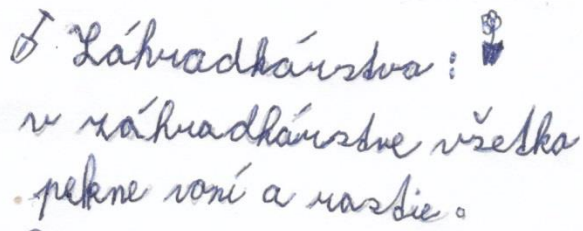 Záhradkárstva:
v záhradkárstve všetko
pekne voní a rastie.